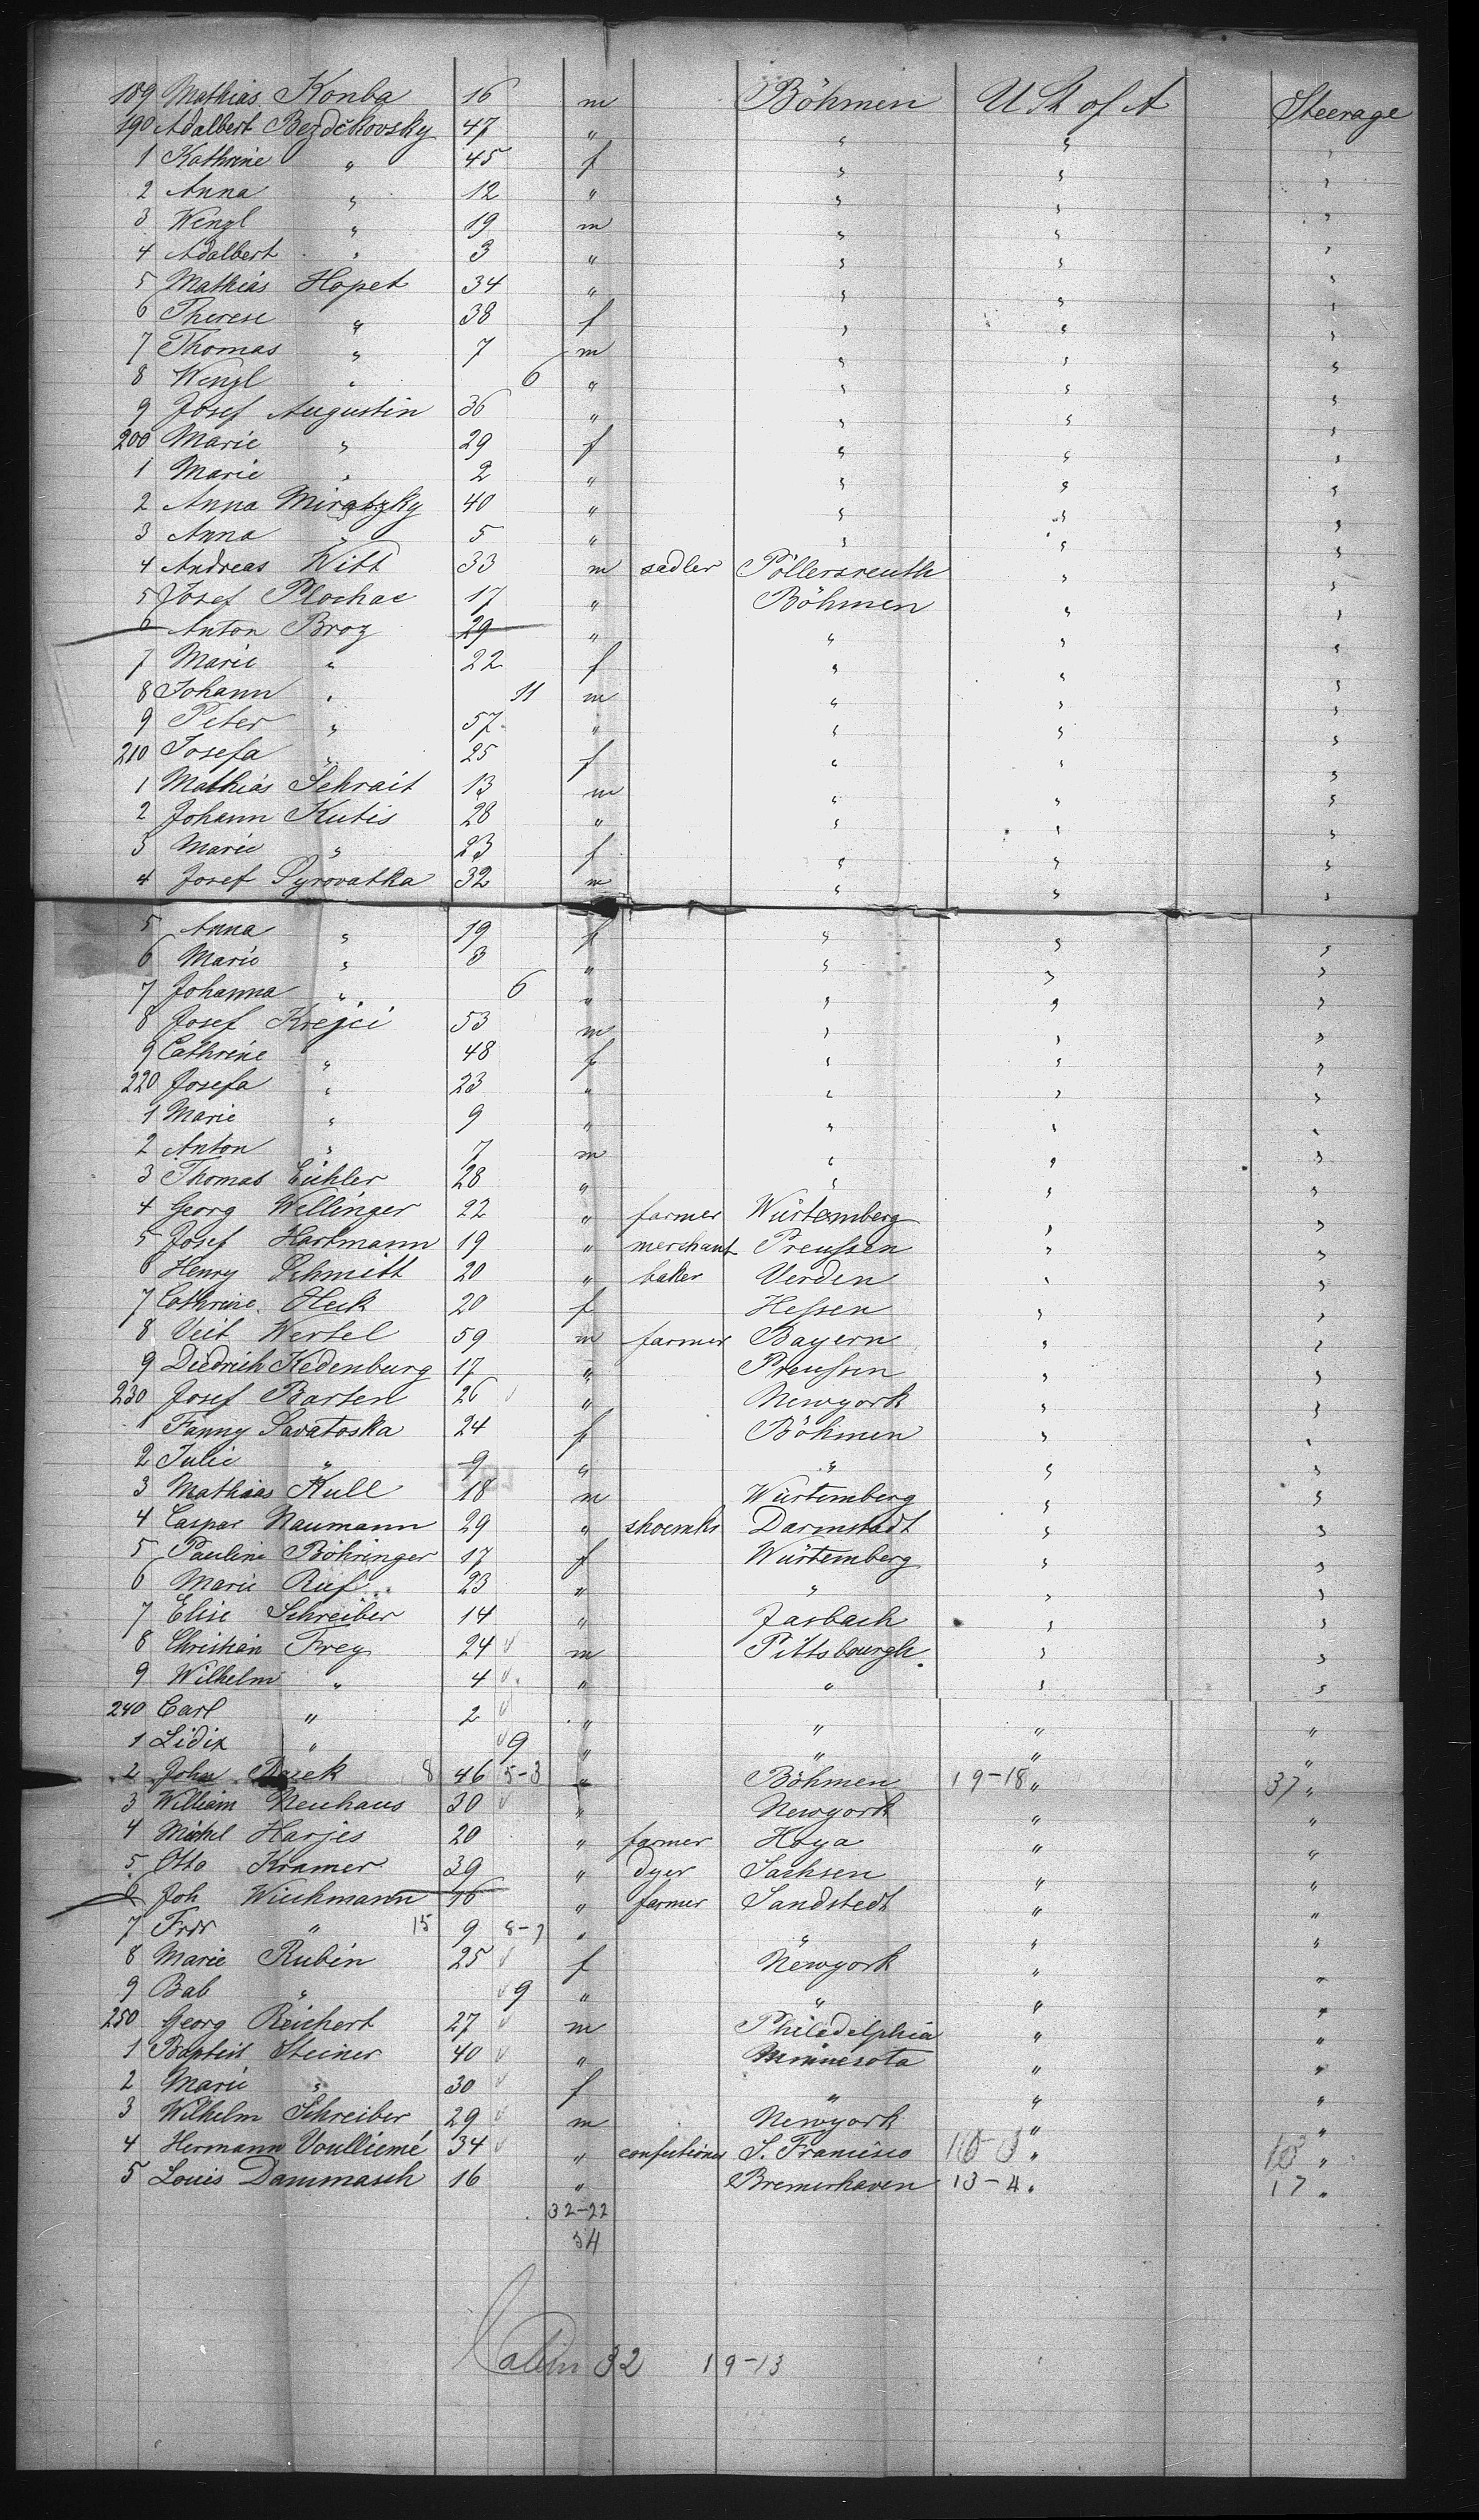 189 Mathias Konba 16 m Böhmen U St of A Steerage
190 Adalbert Bezdčkovsky 47 " " " "
1 Kathrine " 45 f " " "
2 Anna " 12 " " " "
3 Wenzl " 19 m " " "
4 Adalbert " 3 " " " "
5 Mathias Hopet 34 " " " "
6 Therese " 38 f " " "
7 Thomas " 7 m " " "
8 Wenzl " 6 " " " "
9 Josef Augustin 36 " " " "
200 Marie " 29 f " " "
1 Marie " 2 " " " "
2 Anna Miratzky 40 " " " "
3 Anna " 5 " " " "
4 Andreas Witt 33 m sadler Pöllersreuth " "
5 Josef Plochac 17 " Böhmen " "
6 Anton Broz 29 " " " "
7 Marie " 22 f " " "
8 Johann " 11 m " " "
9 Peter " 57 " " " "
210 Josefa " 25 f " " "
1 Mathias Schrait 13 m " " "
2 Johann Kutis 28 " " " "
3 Marie " 23 f " " "
4 Josef Syrovatka 32 m " " "
5 Anna " 19 f " " "
6 Marie " 3 " " " "
7 Johanna " 6 " " " "
8 Josef Krejci 53 m " " "
9 Cathrine " 48 f " " "
220 Josefa " 23 " " " "
1 Marie " 9 " " " "
2 Anton " 7 m " " "
3 Thomas Eichler 28 " " " "
4 Georg Wellinger 22 " farmer Würtemberg " "
5 Josef Hartmann 19 " merchant Preussen " "
6 Henry Schmitt 20 " baker Verden " "
7 Cathrine Heck 20 f Hessen " "
8 Veit Wertel 59 m farmer Bayern " "
9 Diedrich Kedenburg 17 " Preussen " "
230 Josef Barten 26 " Newyork " "
1 Fanny Savatoska 24 f Böhmen " "
2 Julie " 9 " " " "
3 Mathias Kull 18 m Würtemberg " "
4 Caspar Naumann 29 " shoemkr Darmstadt " "
5 Pauline Böhringer 17 f Würtemberg " "
6 Marie Rief 23 " " " "
7 Elise Schreiber 14 " Jasbach " "
8 Christian Frey 24 m Pittsbourgh " "
9 Wilhelm " 4 " " " "
240 Carl " 2 " " " "
1 Lidia " 9 " " " "
2 John 8 46 5-3 " Böhmen 19-18 " 37 "
3 William Neuhaus 30 " Newyork " "
4 Michel Harjes 20 " farmer Hoya " "
5 Otto Kramer 39 " dyer Sachsen " "
6 Joh Wichmann 16 " farmer Sandstedt " "
7 Frdr " 15 9 8-7 " " " "
8 Marie Rubin 25 f Newyork " "
9 Bab " 9 " " " "
250 Georg Reichert 27 m Philadelphia " "
1 Baptist Steiner 40 " Minnesota " "
2 Marie " 30 f " " "
3 Wilhelm Schreiber 29 m Newyork " "
4 Hermann Voulliemé 34 " confectioner S. Francisco " "
5 Louis Dammasch 16 " Bremerhaven 13-4 " 17 "
32-22
54
Cabin 32 19-13